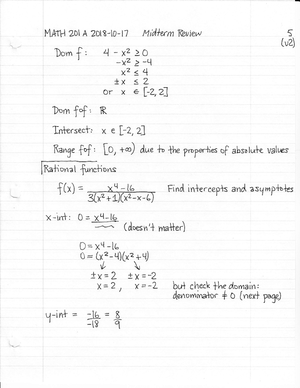 MATH 201 A 2018-10-17 Midterm Review 5
(v2)
Dom f: 4 - x² ≥ 0
-x² ≥ -4
x² ≤ 4
±x ≤ 2
or x ∈ [-2, 2]
Dom fof: ℝ
Intersect: x ∈ [-2, 2]
Range fof: [0, +∞) due to the properties of absolute values
Rational functions
f(x) = x⁴-16 / 3(x²+1)(x²-x-6) Find intercepts and asymptotes
x-int: 0 = x⁴-16
(doesn't matter)
0 = x⁴-16
0 = (x²-4)(x²+4)
↓ ↓
±x = 2 ±x = -2
x = 2, x = -2 but check the domain:
denominator ≠ 0 (next page)
y-int = -16/-18 = 8/9